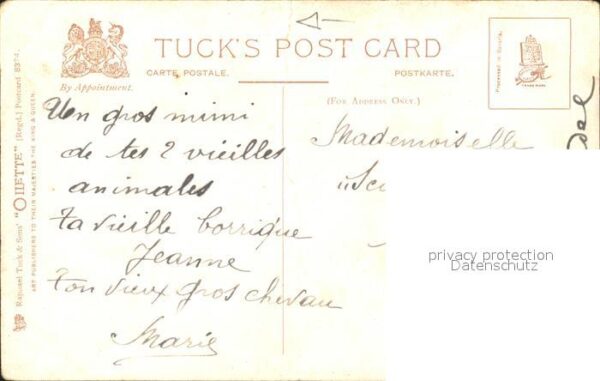 TUCK'S POST CARD
CARTE POSTALE.
POSTKARTE.
By Appointment.
(FOR ADDRESS ONLY.)
Processed in Bavaria.
TRADE MARK
Raphael Tuck & Sons' "OILETTE" (Regd.) Postcard
ART PUBLISHERS TO THEIR MAJESTIES THE KING & QUEEN.
Un gros mimi
de tes 2 vieilles
animales
ta vieille borrique
Jeanne
ton vieux gros chevau
Marie
Mademoiselle
privacy protection
Datenschutz